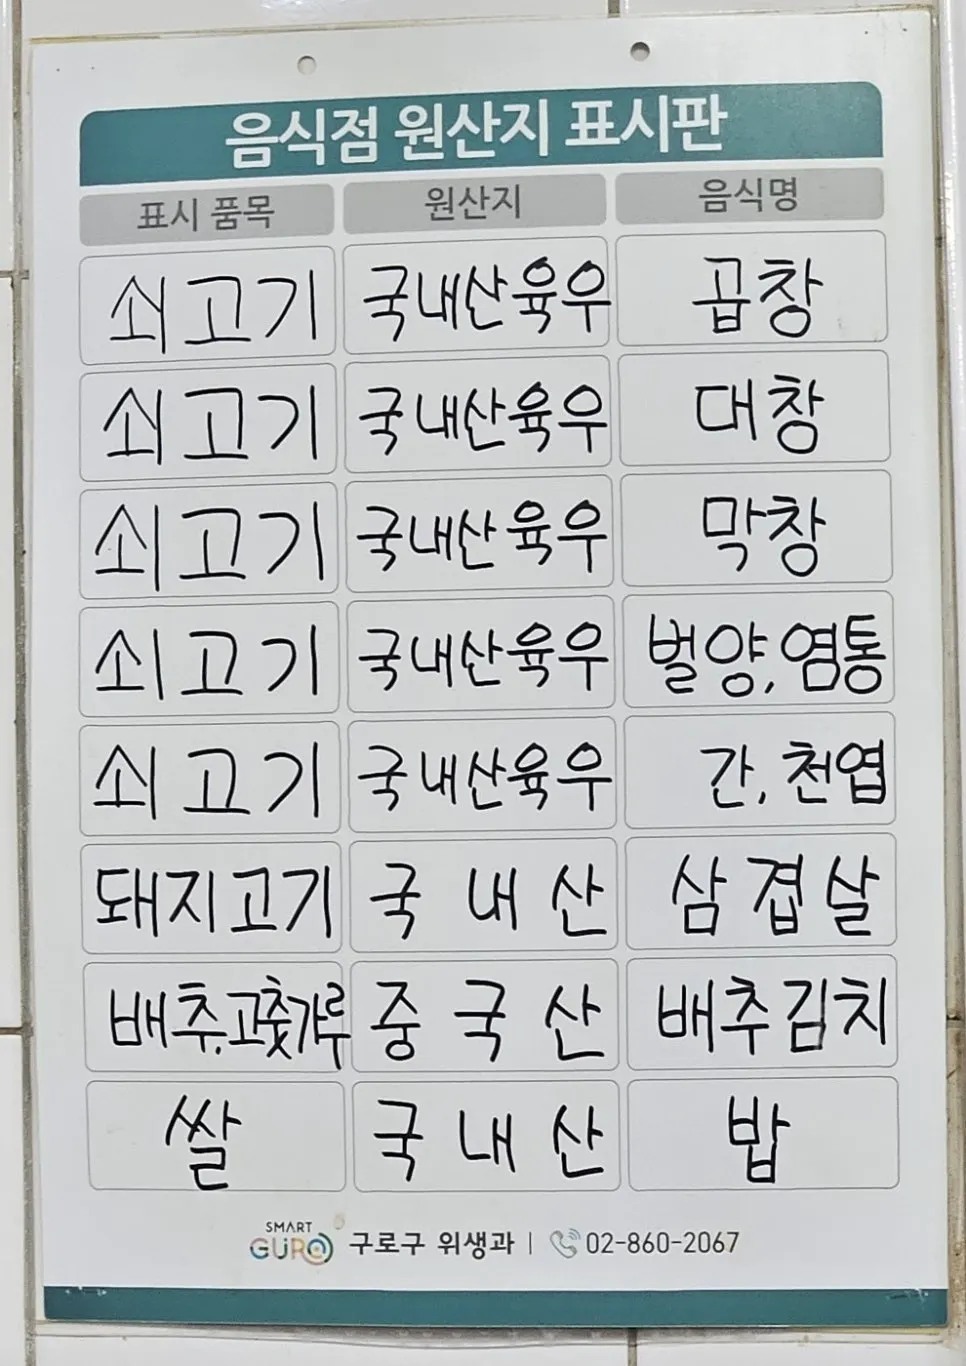 음식점 원산지 표시판
표시 품목 원산지 음식명
쇠고기 국내산육우 곱창
쇠고기 국내산육우 대창
쇠고기 국내산육우 막창
쇠고기 국내산육우 벌양,염통
쇠고기 국내산육우 간,천엽
돼지고기 국내산 삼겹살
배추,고춧가루 중국산 배추김치
쌀 국내산 밥
SMART
GURO 구로구 위생과 | 02-860-2067